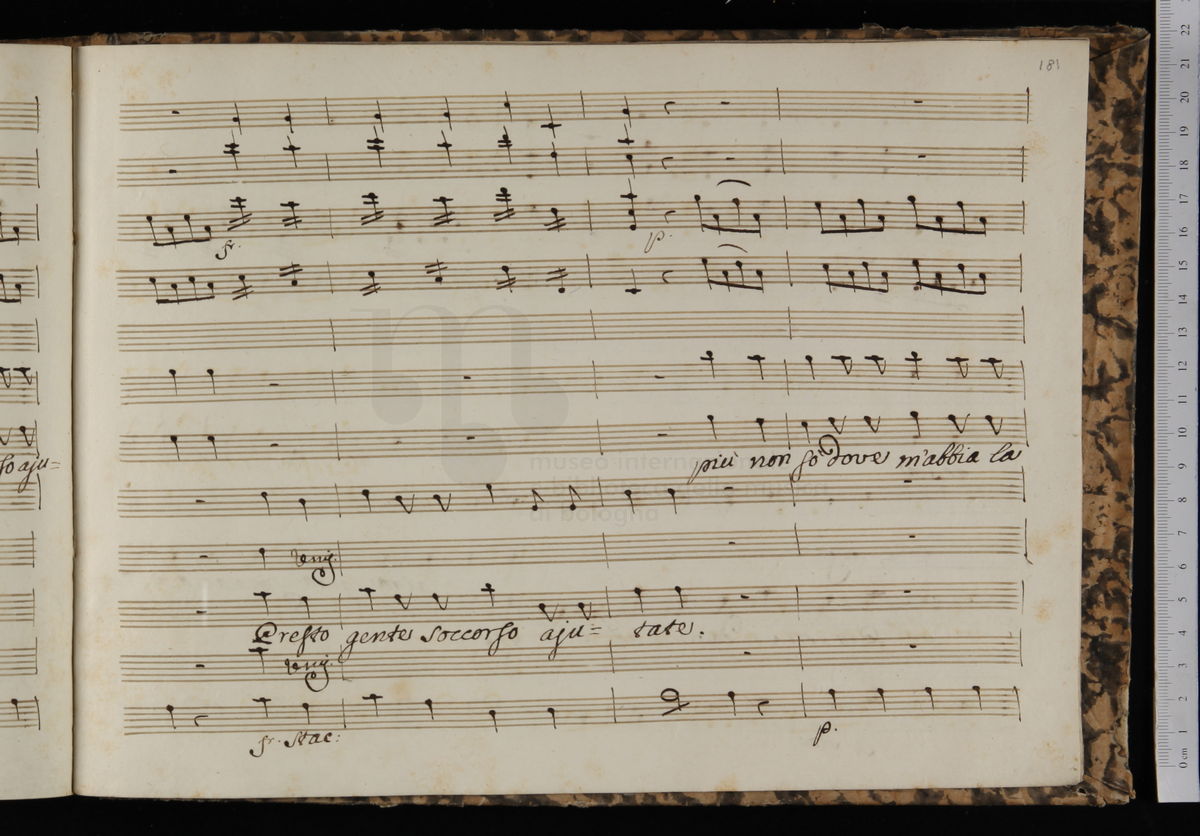 181
fr.
p.
so aju=
più non so dove m'abbia la
museo interna
di bologna
unis.
Presto gente soccorso aju= tate.
unis.
fr. Stac:
p.
0 cm 1 2 3 4 5 6 7 8 9 10 11 12 13 14 15 16 17 18 19 20 21 22